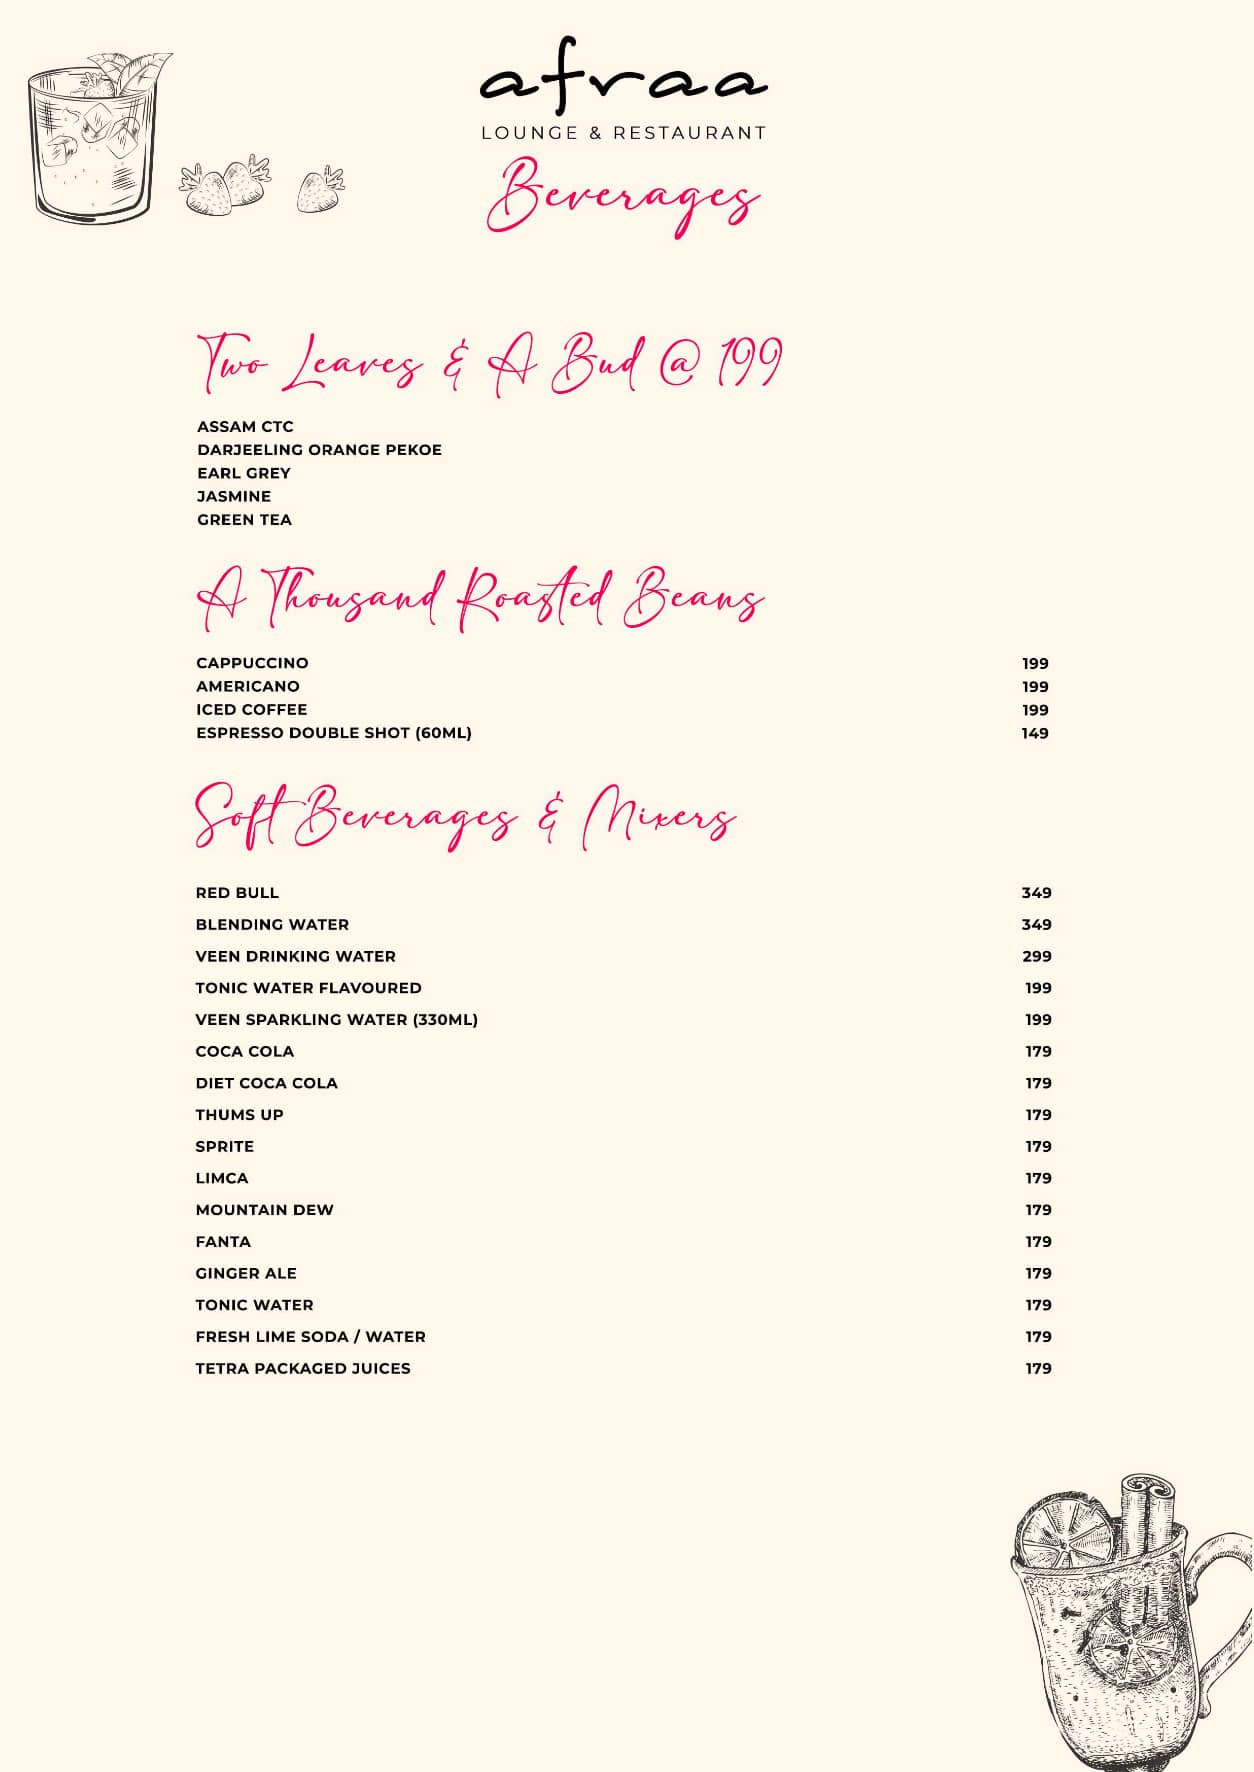 afraa
LOUNGE & RESTAURANT
Beverages
Two Leaves & A Bud @ 199
ASSAM CTC
DARJEELING ORANGE PEKOE
EARL GREY
JASMINE
GREEN TEA
A Thousand Roasted Beans
CAPPUCCINO 199
AMERICANO 199
ICED COFFEE 199
ESPRESSO DOUBLE SHOT (60ML) 149
Soft Beverages & Mixers
RED BULL 349
BLENDING WATER 349
VEEN DRINKING WATER 299
TONIC WATER FLAVOURED 199
VEEN SPARKLING WATER (330ML) 199
COCA COLA 179
DIET COCA COLA 179
THUMS UP 179
SPRITE 179
LIMCA 179
MOUNTAIN DEW 179
FANTA 179
GINGER ALE 179
TONIC WATER 179
FRESH LIME SODA / WATER 179
TETRA PACKAGED JUICES 179